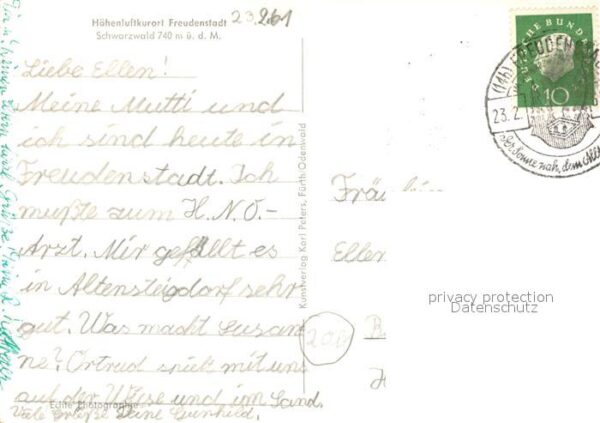 Höhenluftkurort Freudenstadt
Schwarzwald 740 m ü. d. M.
23.2.61
Liebe Ellen!
Meine Mutti und
ich sind heute in
Freudenstadt. Ich
mußte zum H.N.O.-
Arzt. Mir gefällt es
in Altensteigdorf sehr
gut. Was macht Susan
ne? Ortrud spielt mit uns
auf der Wiese und im Sand.
Viele Grüße Deine Gunhild.
Echte Photographie
Kunstverlag Karl Peters, Fürth/Odenwald
DEUTSCHE BUNDESPOST
10
FREUDENSTADT
23.2.
der Sonne nah, dem
Fräu
Ellen
privacy protection
Datenschutz